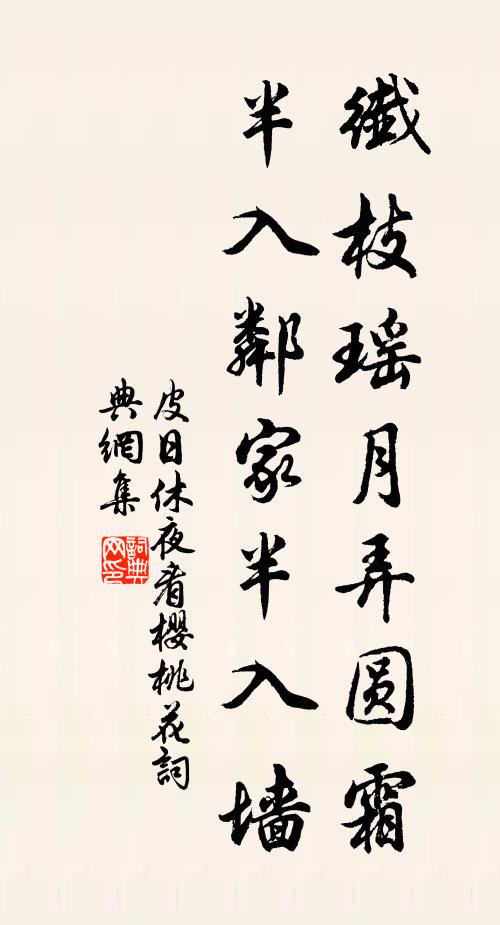 纖枝瑶月弄圆霜
半入鄰家半入墙
皮日休夜看櫻桃花詞
典網集
詞典網印